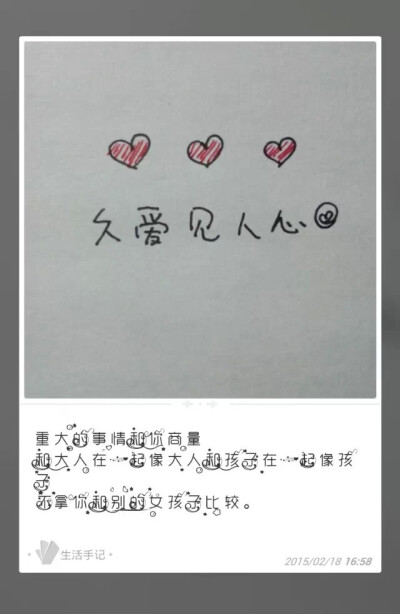 久爱见人心
重大的事情和你商量
和大人在一起像大人和孩子在一起像孩
子
不拿你和别的女孩子比较。
生活手记
2015/02/18 16:58